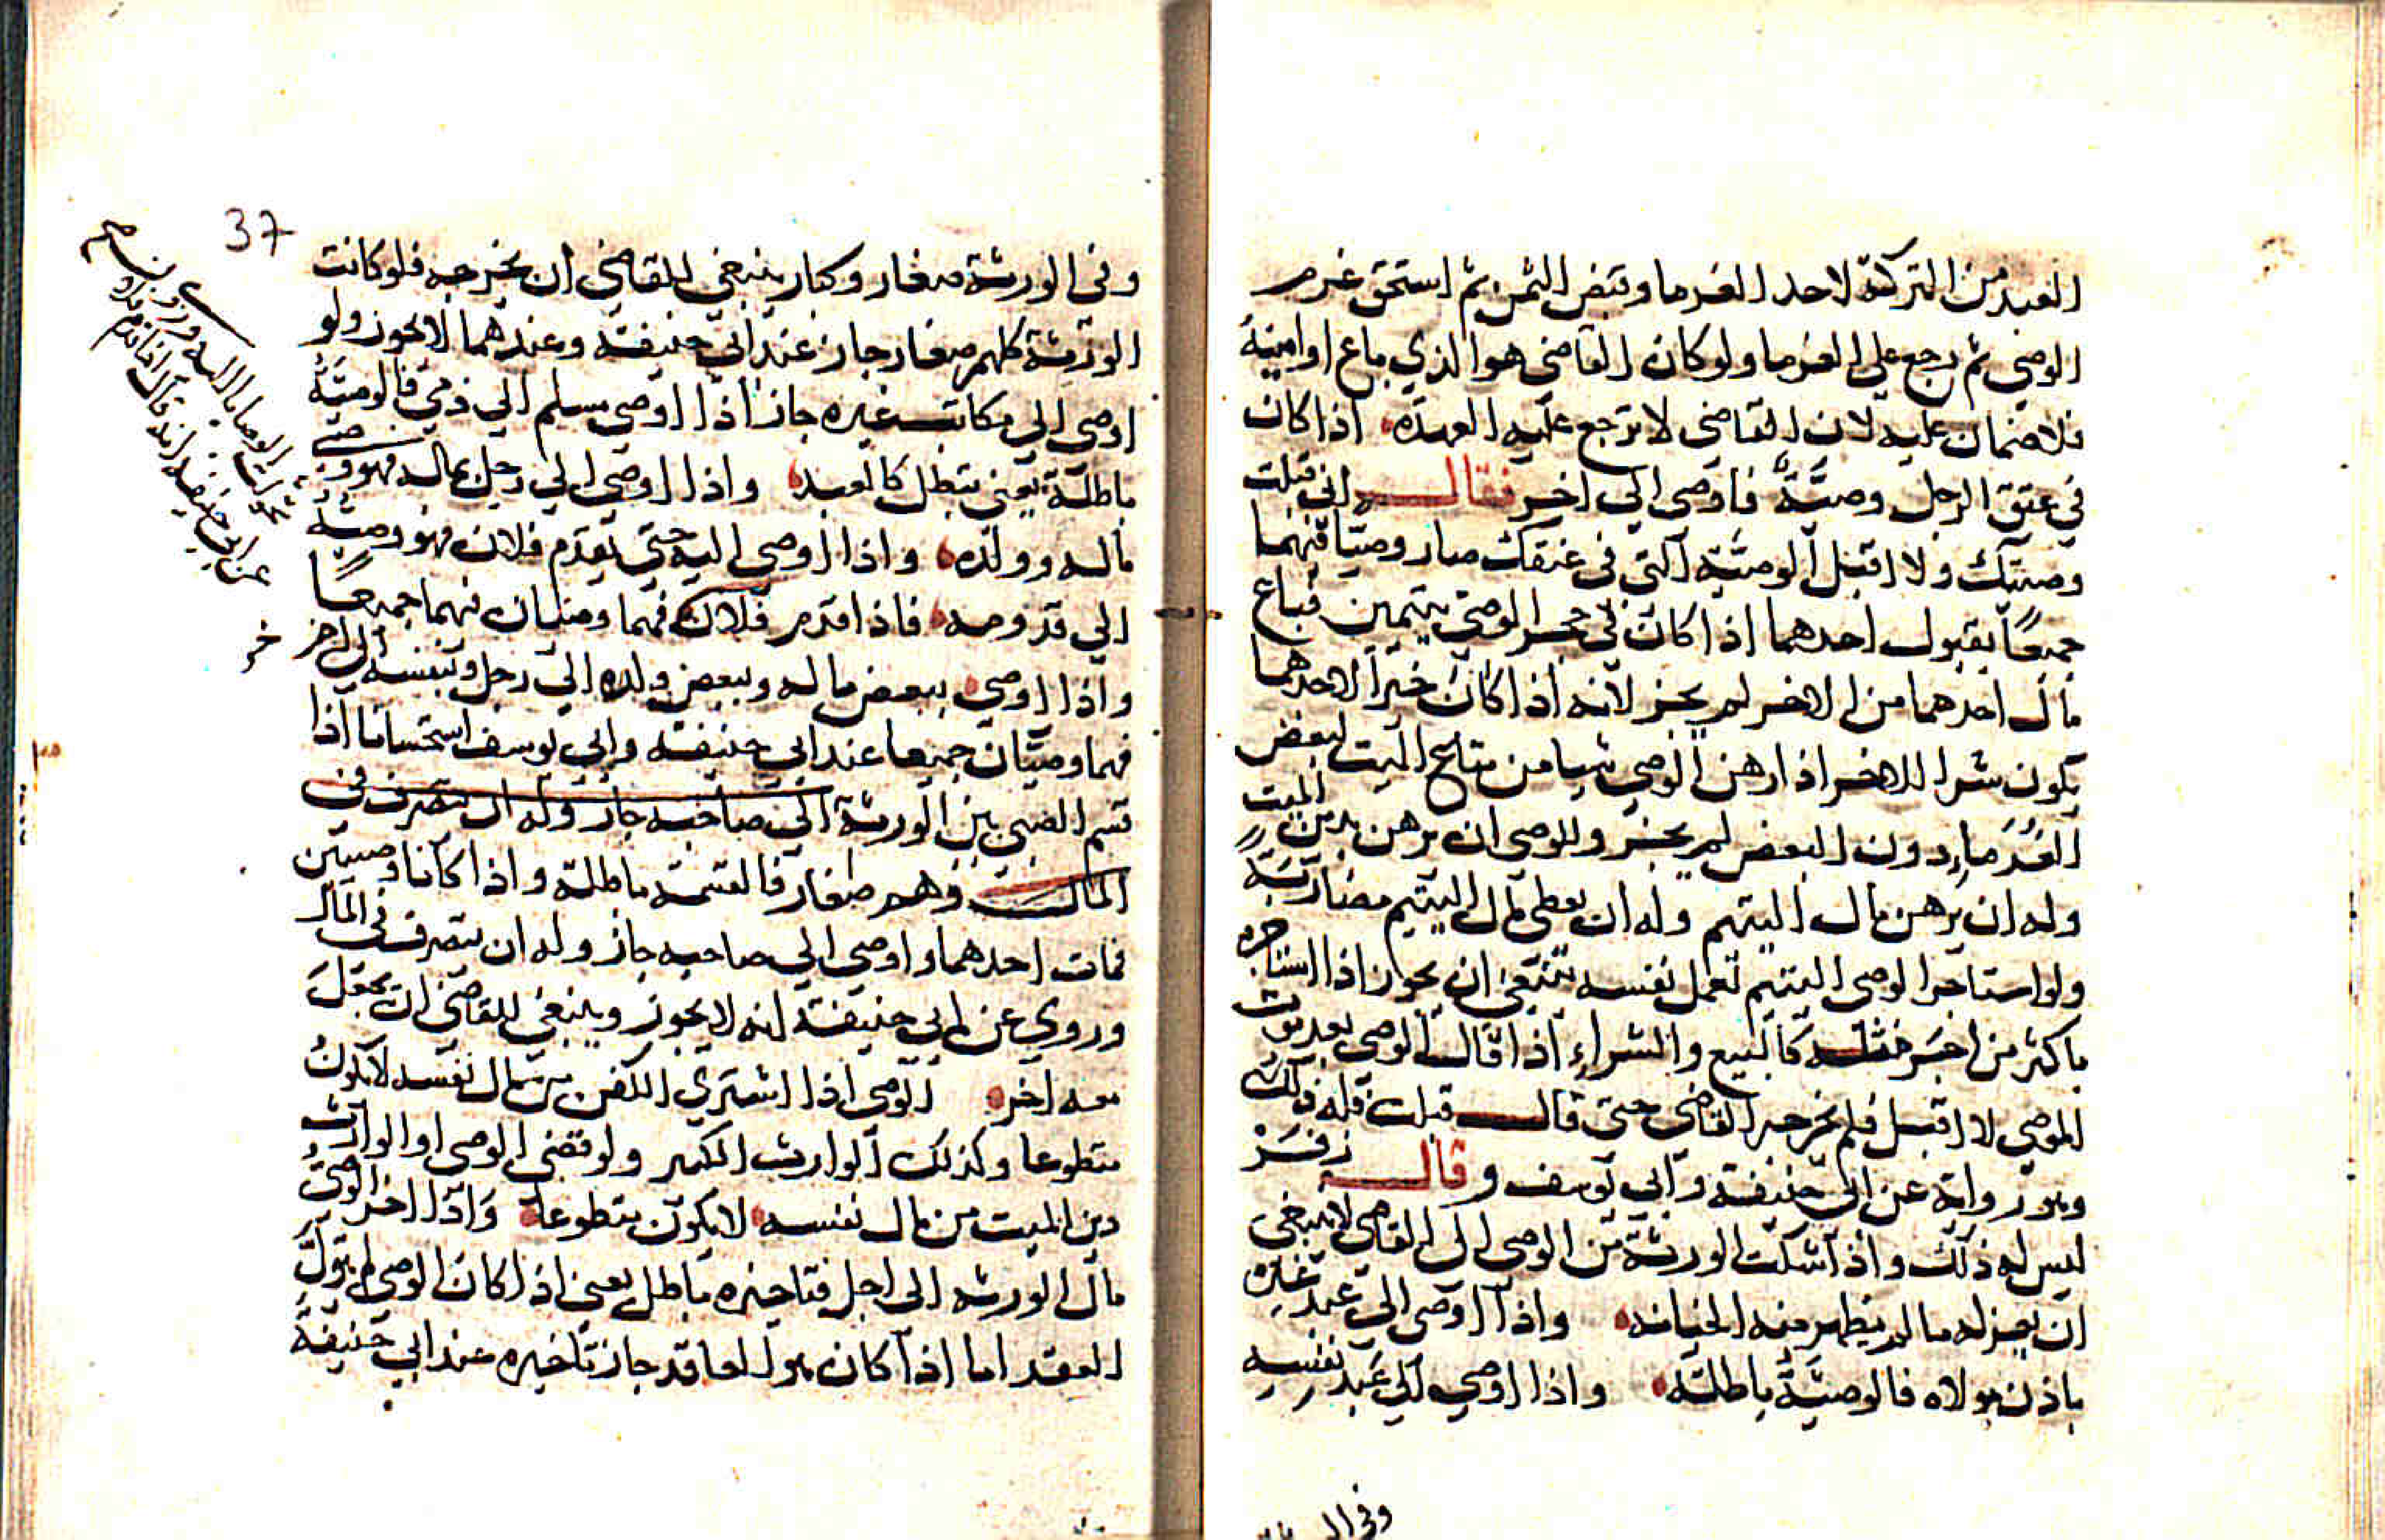 العبد من التركة لاحد الغرما وقبض الثمن ثم استحق غرم
الوصي ثم رجع علي الغرما ولو كان القاضي هو الذي باع او امينه
فلا ضمان عليه لان القاضي لا ترجع عليه العهدة اذا كان
في عتق الرجل وصيته فاوصي الي اخر فقال اني قبلت
وصيتك ولا اقبل الوصية التي في عنقك صار وصيا فيهما
جميعا بقبول احدهما اذا كان في حجر الوصي يتيمين فباع
مال احدهما من الاخر لم يجز لانه اذا كان خيرا لاحدهما
يكون شرا للاخر اذا رهن الوصي شيا من متاع الميت لبعض
الغرماء دون البعض لم يجز وللوصي ان يرهن بدين الميت
وله ان يرهن مال اليتيم وله ان يعطي مال اليتيم مضاربة
ولو استاجر الوصي اليتيم لعمل نفسه ينبغي ان يجوز اذا استاجره
باكثر من اجر مثله كالبيع والشراء اذا قال الوصي بعد موت
الموصي لا اقبل فلم يخرجه القاضي حتي قال قبلت فله ذلك
وهو رواية عن ابي حنيفة وابي يوسف وقال زفر
ليس له ذلك واذا شكت الورثة من الوصي الي القاضي لا ينبغي
ان يعزله ما لم يظهر منه الخيانة واذا اوصي الي عبد غيره
باذن مولاه فالوصية باطلة واذا اوصي الي عبد نفسه
وفي الورثة
37
وفي الورثة صغار وكبار ينبغي للقاضي ان يخرجه فلو كانت
الورثة كلهم صغار جاز عند ابي حنيفة وعندهما لا يجوز ولو
اوصي الي مكاتب غيره جاز اذا اوصي مسلم الي ذمي فالوصية
باطلة يعني يبطل كالعبد واذا اوصي الي رجل بماله فهو وصي
ماله وولده واذا اوصي اليه حتي يقدم فلان فهو وصيه
الي قدومه فاذا قدم فلان فهما وصيان فهما جميعا
واذا اوصي ببعض ماله وببعض ولده الي رجل وبنفسه الي اخر
فهما وصيان جميعا عند ابي حنيفة وابي يوسف استحسانا اذا
قسم الصبي بين الورثة الي صاحبه جاز وله ان يتصرف في
المال وهم صغار فالقسمة باطلة واذا كانا وصيين
فمات احدهما واوصي الي صاحبه جاز وله ان يتصرف في المال
وروي عن ابي حنيفة انه لا يجوز وينبغي للقاضي ان يجعل
معه اخر الوصي اذا اشتري الكفن من مال نفسه لا يكون
متطوعا وكذلك الوارث الكبير ولو قضي الوصي او الوارث
دين الميت من مال نفسه لا يكون متطوعا واذا اخر الوصي
مال الورثه الي اجل فتاخيره باطل يعني اذا كان الوصي لم يتول
العقد اما اذا كان هو العاقد جاز تاخيره عند ابي حنيفة